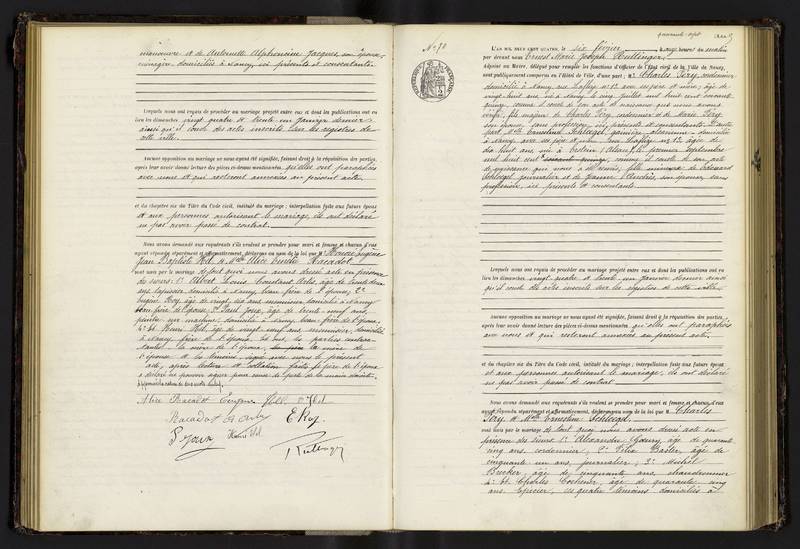 manœuvre et de Antoinette Alphonsine Jacques, son épouse
domiciliés à Nancy, ici présents et consentants.
Lesquels nous ont requis de procéder au mariage projeté entre eux et dont les publications ont eu
lieu les dimanches vingt quatre et trente un janvier dernier
ainsi qu'il conste des actes inscrits sur les registres de
cette ville.
Aucune opposition au mariage ne nous ayant été signifiée, faisant droit à la réquisition des parties,
après leur avoir donné lecture des pièces ci-dessus mentionnées qu'elles ont paraphées
avec nous et qui resteront annexées au présent acte,
et du chapitre six du Titre du Code civil, intitulé du mariage ; interpellation faite aux futurs époux
et aux personnes autorisant le mariage, ils ont déclaré
ne pas avoir passé de contrat.
Nous avons demandé aux requérants s'ils veulent se prendre pour mari et femme et chacun d'eux
ayant répondu séparément et affirmativement, déclarons au nom de la loi que M.
Jean Baptiste Hel et Mlle Alice Racadot
sont unis par le mariage de tout quoi nous avons dressé acte en présence
des sieurs: 1° Albert Louis Constant âge de trente deux
ans, domicilié à Nancy, beau frère de l'épouse; 2°
Eugène Roy, âgé de vingt six ans, menuisier, domicilié à Nancy
beau frère de l'épouse; 3° Paul âgé de trente neuf ans,
peintre domicilié à Nancy, beau frère de l'épouse
4° et Henri Hel, âgé de vingt neuf ans, menuisier, domicilié
à Nancy, frère de l'époux,
la mère de l'époux, la mère de
l'épouse et les témoins, signé avec nous le présent
acte, après lecture et collation faites, le père de l'époux
a déclaré ne pouvoir signer pour cause de perte de la main droite.
Alice Racadot Eugène Hel
Racadot E Roy
Henri Hel
N° 70
L'AN MIL NEUF CENT QUATRE, le six février, à onze heures du matin
par devant nous Ernest Marie Joseph
Adjoint au Maire, délégué pour remplir les fonctions d'Officier de l'État civil de la Ville de Nancy,
sont publiquement comparus en l'Hôtel de Ville, d'une part : M. Charles Tery, cordonnier,
domicilié à Nancy, rue Laflize n° 13 avec ses père et mère, âgé de
vingt huit ans, né à Nancy le cinq juillet mil huit cent soixante
quinze, comme il conste de son acte de naissance que nous avons
vérifié, fils majeur de Charles Tery, cordonnier et de Marie Tery
son épouse, sans profession, ici présents et consentants. D'autre
part Mlle Ernestine Schlegel, gainière, domiciliée
à Nancy avec ses père et mère, rue Laflize n° 13, âgée de
dix huit ans, née à le premier septembre
mil huit cent comme il conste de son acte
de naissance que nous a été remis, fille mineure de Edouard
Schlegel, journalier et de Jeanne son épouse, sans
profession, ici présents et consentants.
Lesquels nous ont requis de procéder au mariage projeté entre eux et dont les publications ont eu
lieu les dimanches vingt quatre et trente un janvier dernier ainsi
qu'il conste des actes inscrits sur les registres de cette ville.
Aucune opposition au mariage ne nous ayant été signifiée, faisant droit à la réquisition des parties,
après leur avoir donné lecture des pièces ci-dessus mentionnées qu'elles ont paraphées
avec nous et qui resteront annexées au présent acte,
et du chapitre six du Titre du Code civil, intitulé du mariage ; interpellation faite aux futurs époux
et aux personnes autorisant le mariage, ils ont déclaré
ne pas avoir passé de contrat
Nous avons demandé aux requérants s'ils veulent se prendre pour mari et femme et chacun d'eux
ayant répondu séparément et affirmativement, déclarons au nom de la loi que M. Charles
Tery et Mlle Ernestine Schlegel
sont unis par le mariage de tout quoi nous avons dressé acte en
présence des sieurs: 1° Alexandre âgé de quarante
cinq ans, cordonnier; 2° Félix Basler, âgé de
cinquante un ans, journalier; 3° Michel
Becker, âgé de cinquante ans,
4° et Charles âgé de quarante cinq
ans, épicier, ces quatre témoins domiciliés à